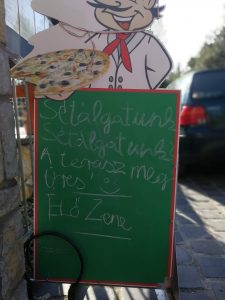 Sétálgatunk
Sétálgatunk?
A terasz meg
üres!
Élő Zene